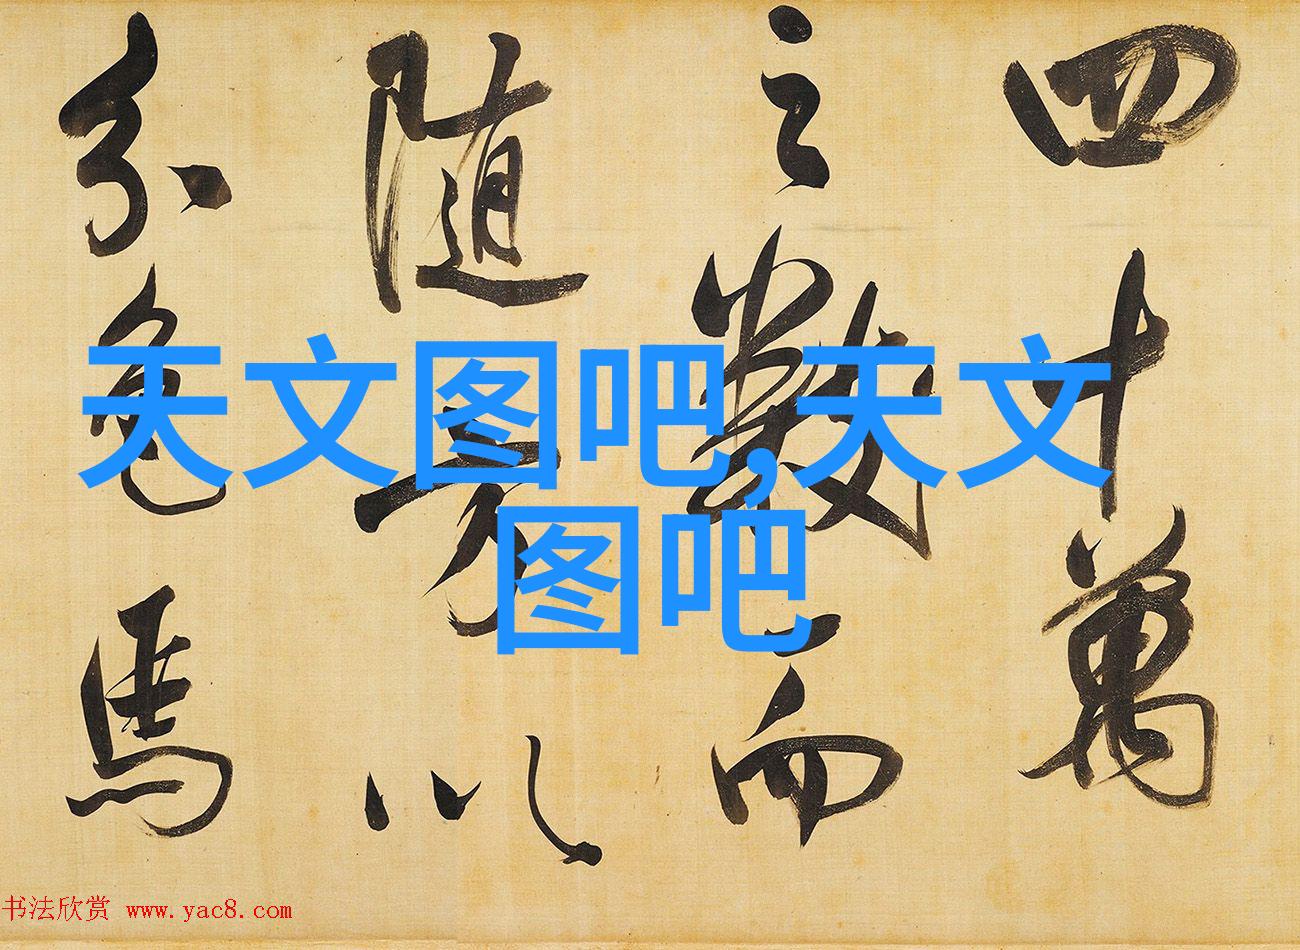 四十萬
之數而
随方以
分色馬
天文图吧,天文
图吧
书法欣赏 www.yac8.com